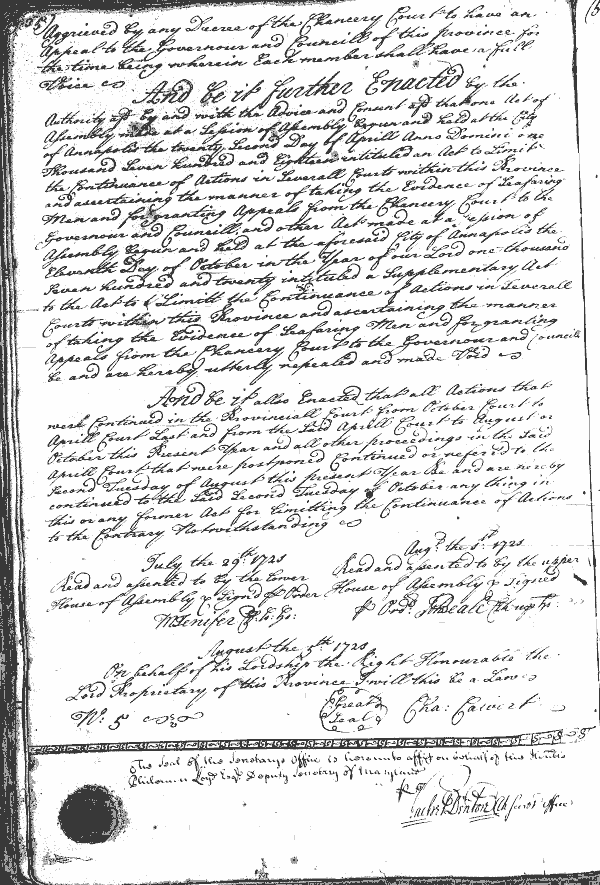 Aggrieved by any Decree of the Chancery Court to have an
Appeal to the Governour and Councill of this province for
the time being wherein Each member shall have a full
Voice
And be it further Enacted by the
Authority afd by and with the Advice and Consent afd that one Act of
Assembly made at a Session of Assembly begun and held at the City
of Annapolis the twenty Second Day of Aprill Anno Domini one
thousand Seven hundred and Eighteen intituled an Act to Limitt
the Continuance of Actions in Severall Courts within this Province
and ascertaining the manner of taking the Evidence of Seafaring
Men and for granting Appeals from the Chancery Court to the
Governour and Councill and other Act made at a Session of
Assembly begun and held at the aforesaid City of Annapolis the
Eleventh Day of October in the Year of our Lord one thousand
Seven hundred and twenty intituled a Supplementary Act
to the Act to Limitt the Continuance of Actions in Severall
Courts within this Province and ascertaining the manner
of taking the Evidence of Seafaring Men and for granting
Appeals from the Chancery Court to the Governour and Councill
be and are hereby utterly repealed and made Void
And be it also Enacted that all Actions that
were Continued in the Provinciall Court from October Court to
Aprill Court Last and from the Said Aprill Court to August or
October this Present Year and all other proceedings in the Said
Aprill Court that were postponed Continued or referred to the
Second Tuesday of August this present Year Be and are hereby
continued to the Said Second Tuesday of October any thing in
this or any former Act for Limitting the Continuance of Actions
to the Contrary Notwithstanding
July the 29th 1721
Read and assented to by the Lower
House of Assembly & Signd p Order
MJenifer
Augt the 5th 1721
Read and assented to by the upper
House of Assembly & signed
p Ordr JBeale
August the 5th 1721
On behalf of his Lordship the Right Honourable the
Lord Proprietary of this Province I will this be a Law
No: 5
Great Seal
Cha: Calvert
The Seal of the Secretarys Office is hereunto affixt on behalf of the Honble
Philemon Loyd Esqr Deputy Secretary of Maryland
p
Vachel Denton Clk Secrys Office